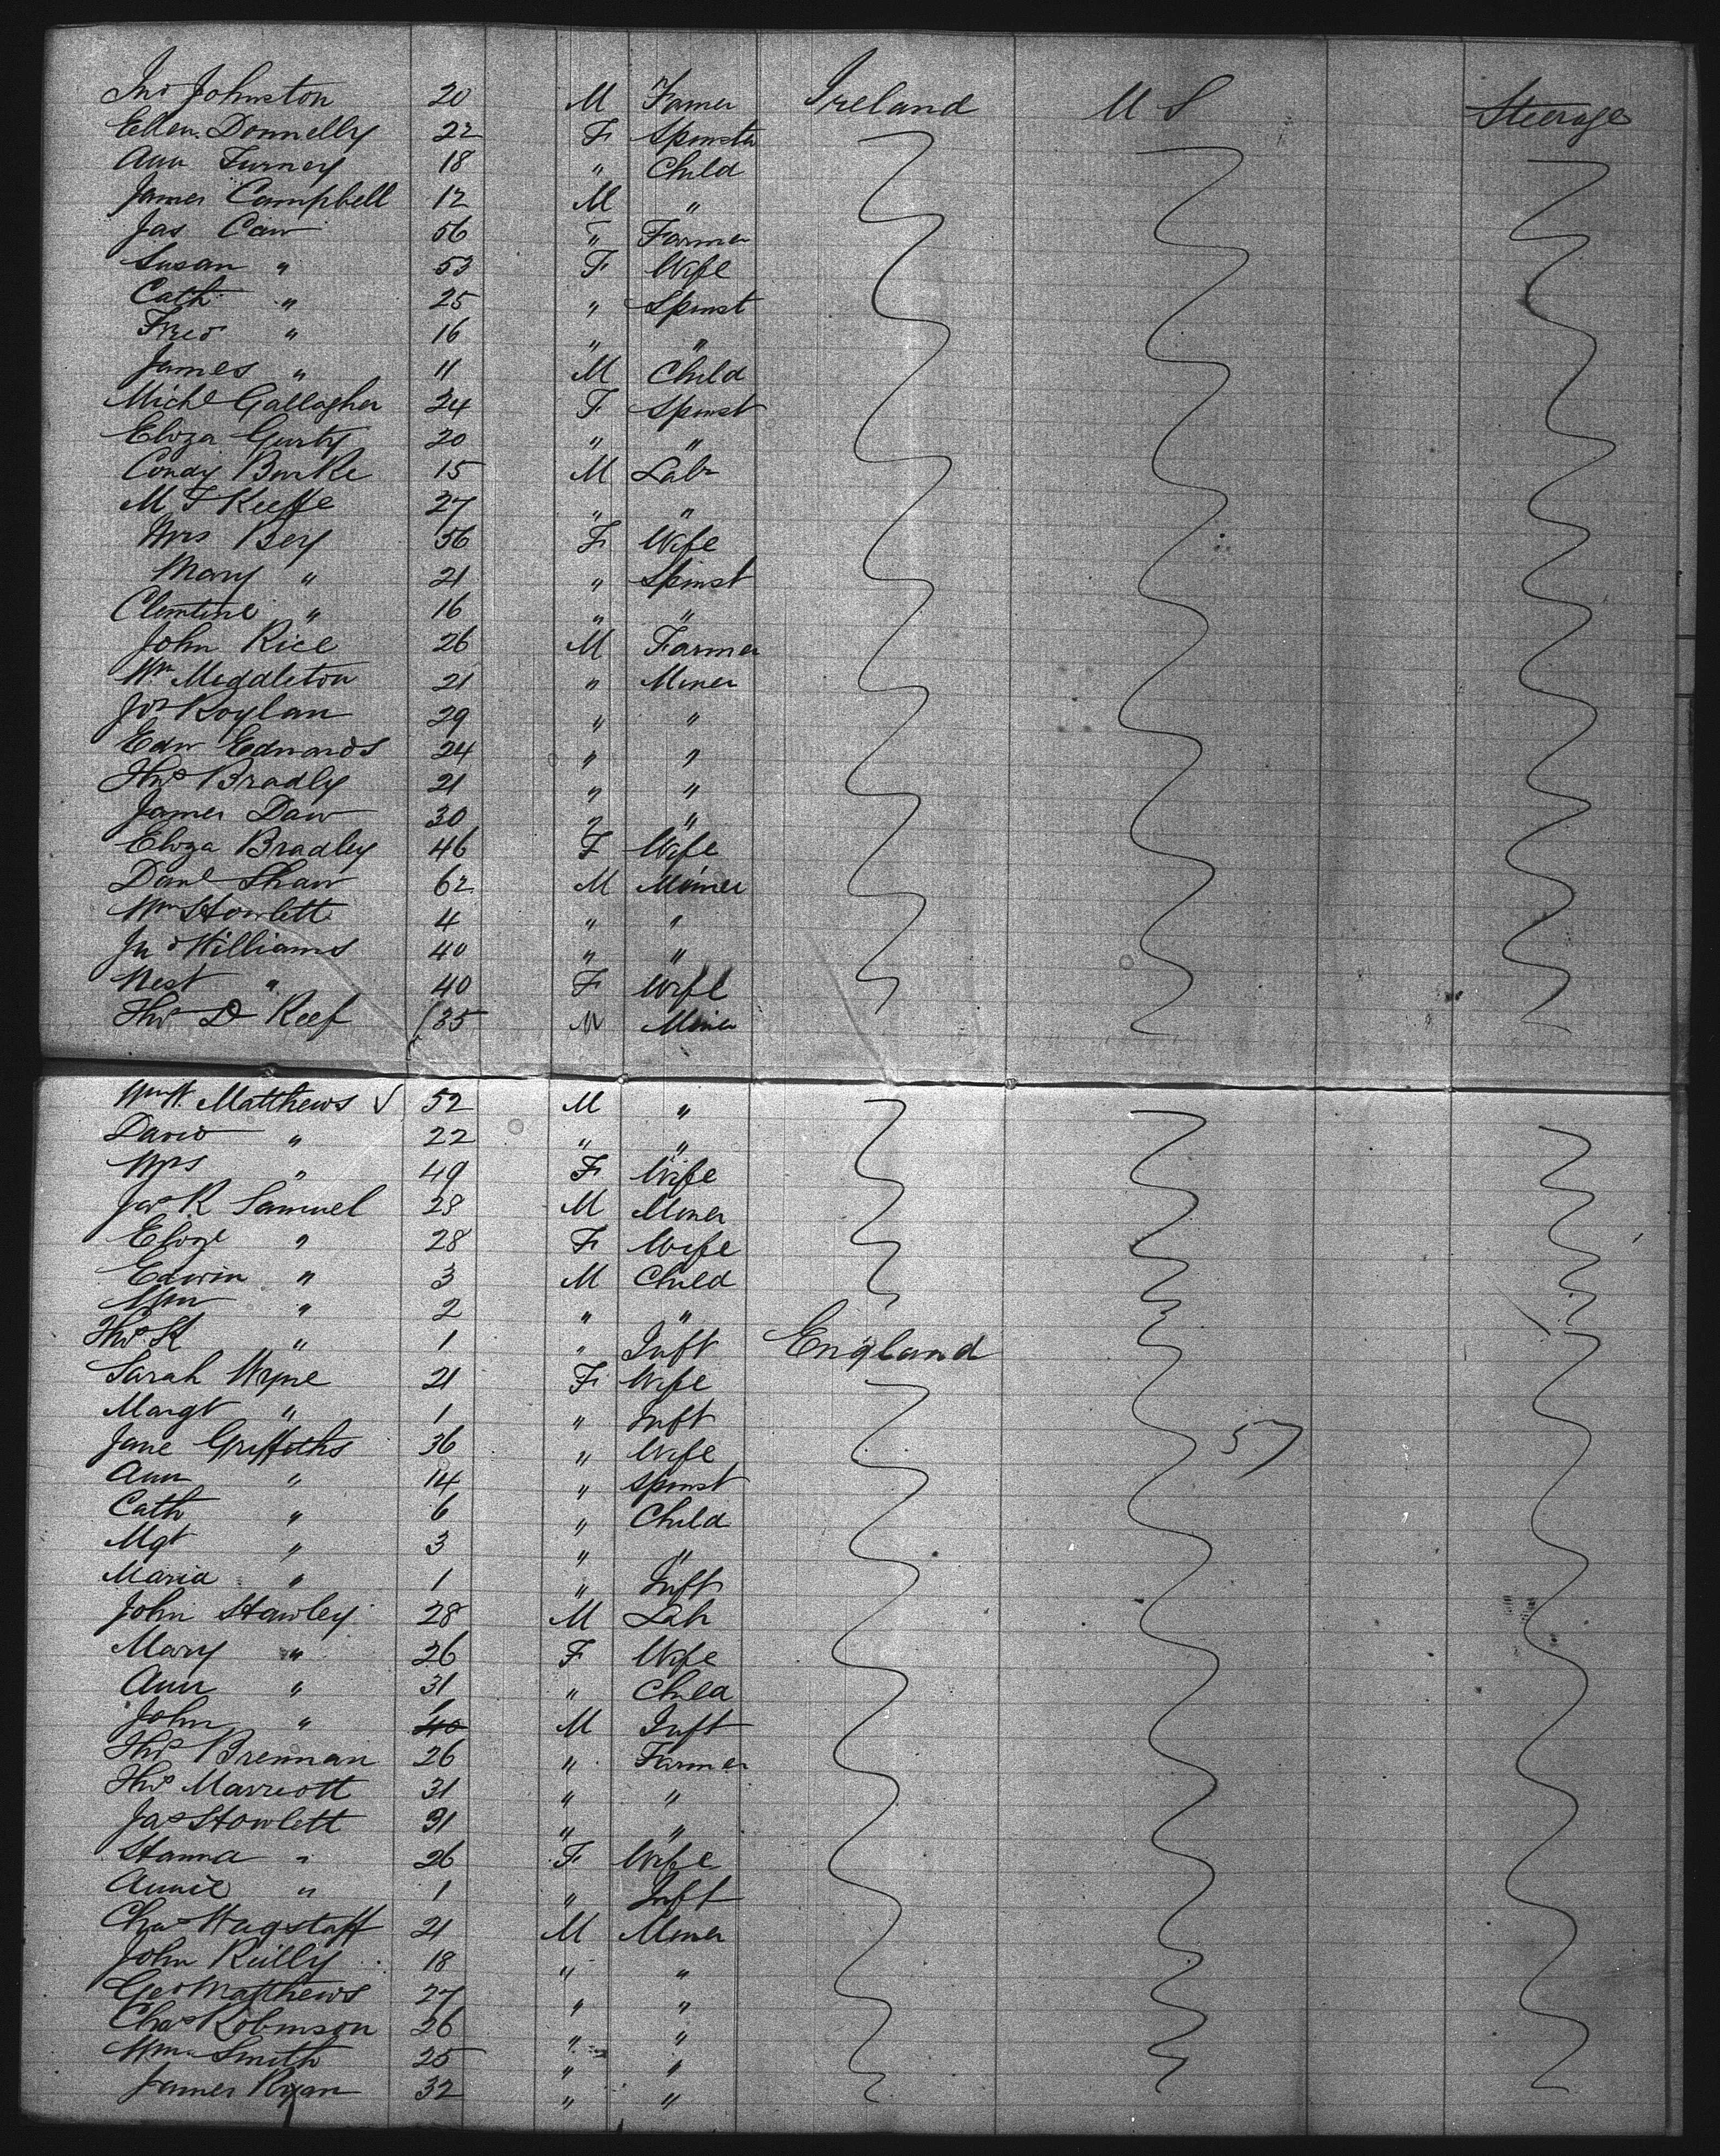 Jno Johnston 20 M Famer Ireland U S Steerage
Ellen Donnelly 22 F Spinster
Ann Furney 18 " Child
James Campbell 12 M "
Jas Caw 56 " Farmer
Susan " 53 F Wife
Cath " 25 " Spinst
Fred " 16 " "
James " 11 M Child
Michl Gallagher 24 F Spinst
Eliza Gurty 20 " "
Condy Burke 15 M Labr
M F Keeffe 27 " "
Mrs Bey 56 F Wife
Mary " 21 " Spinst
Clemtine " 16 " "
John Rice 26 M Farmer
Wm Middleton 21 " Miner
Jos Roylan 29 " "
Edw Edwards 24 " "
Thos Bradly 21 " "
James Daw 30 " "
Eliza Bradley 46 F Wife
Danl Shaw 62 M Miner
Wm Howlett 4 " "
Jno Williams 40 " "
Nest " 40 F Wife
Thos D Reef 35 M Miner
Wm W. Matthews √ 52 M "
David " 22 " "
Mrs " 49 F Wife
Jas R Samuel 28 M Miner
Elize " 28 F Wife
Edwin " 3 M Child
Wm " 2 " "
Thos K " 1 " Inft England
Sarah Wyne 21 F Wife
Margt " 1 " Inft
Jane Griffiths 36 " Wife 57
Ann " 14 " Spinst
Cath " 6 " Child
Mgt " 3 " "
Maria " 1 " Inft
John Hawley 28 M Lab
Mary " 26 F Wife
Ann " 31 " Child
John " M Inft
Thos Brennan 26 " Farmer
Thos Marriott 31 " "
Jas Howlett 31 " "
Hanna " 26 F Wife
Annie " 1 " Inft
Chas Wagstaff 21 M Miner
John Reilly 18 " "
Geo Matthews 27 " "
Chas Robinson 26 " "
Wm Smith 25 " "
James Ryan 32 " "